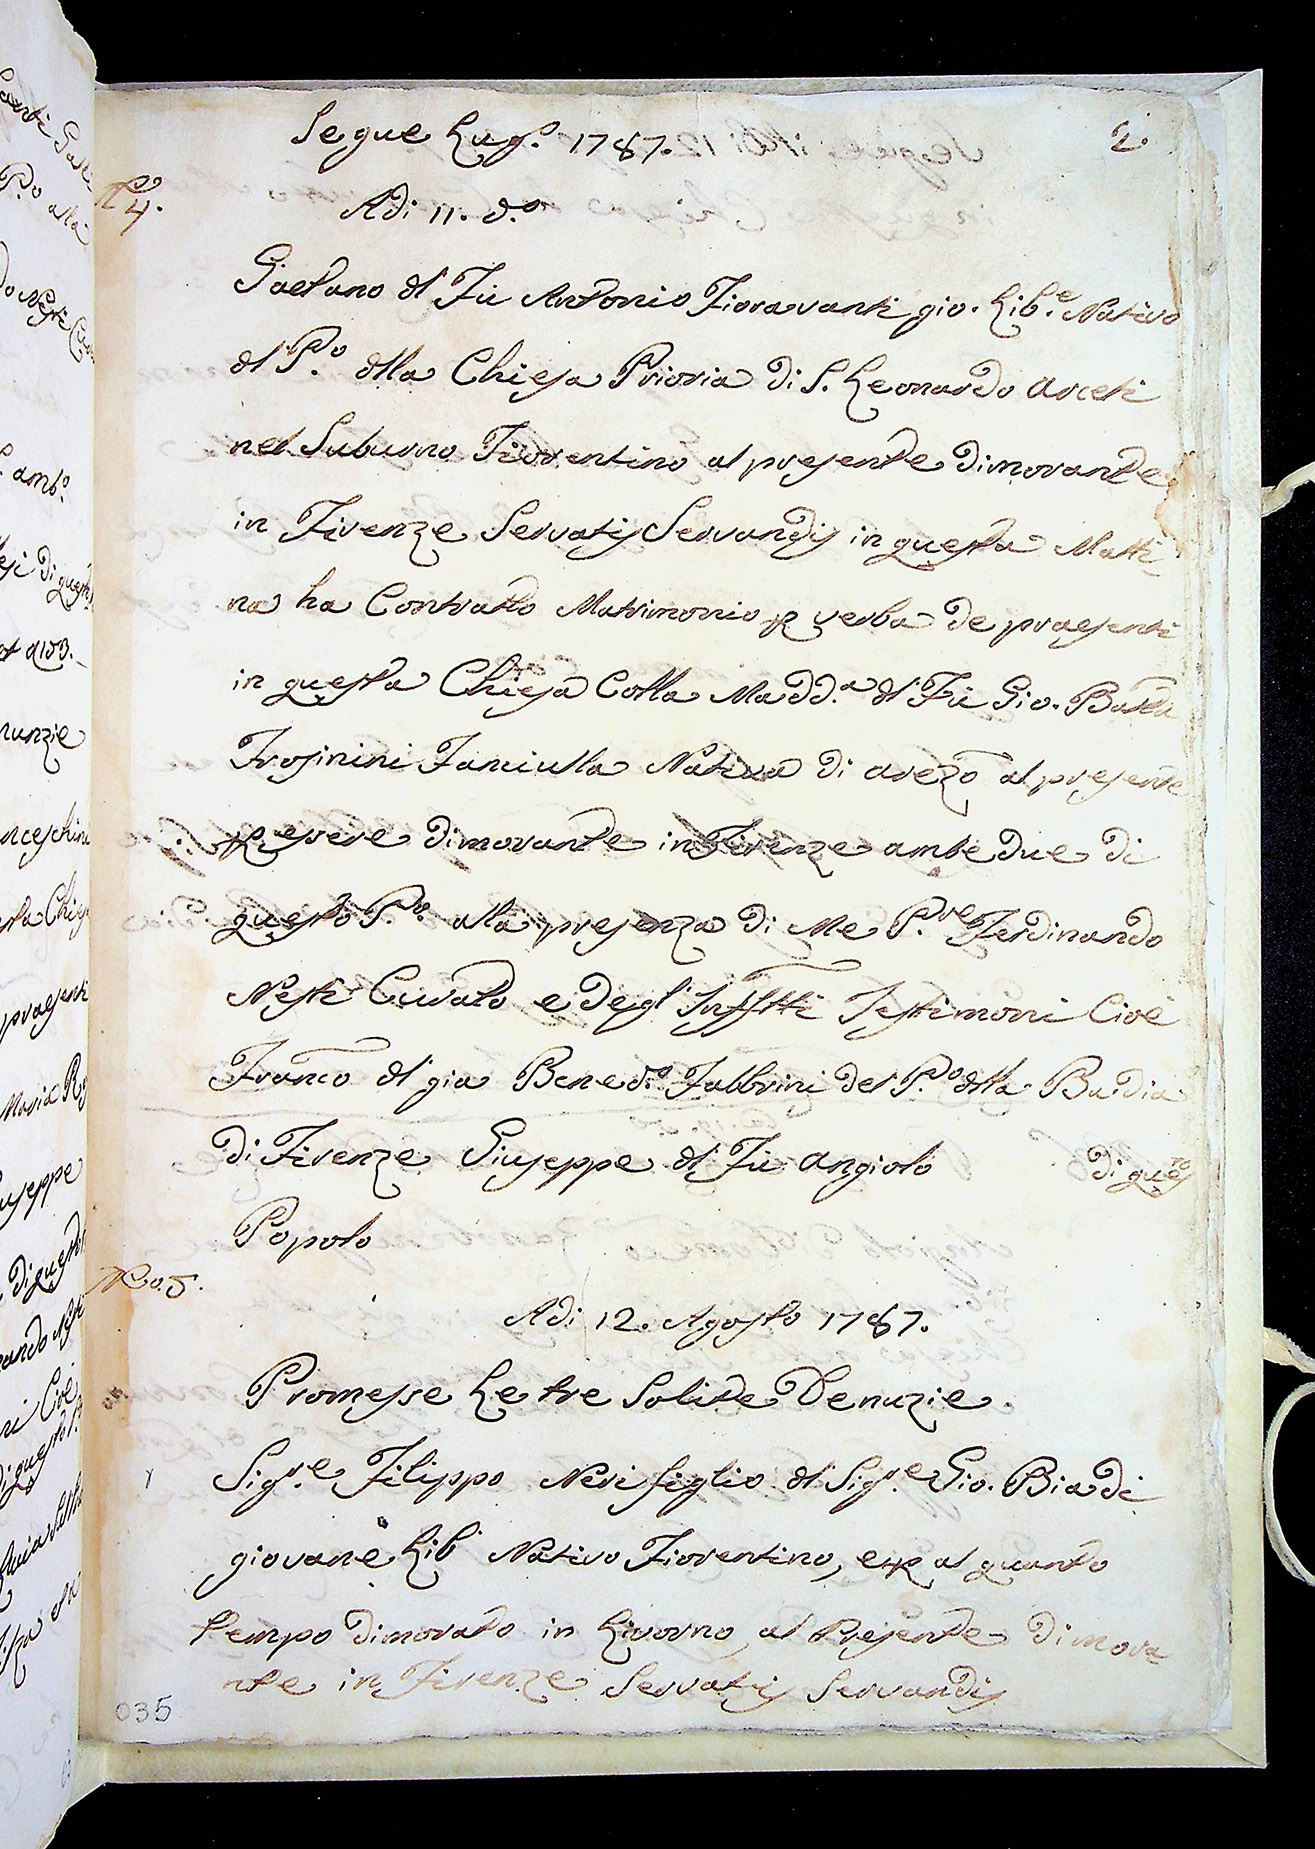 Segue Lug.o 1787.
2.
No 4.
Adi 11. d.o
Gaetano dl Fù Antonio Fioravanti gio. Lib.e Nativo
dl P.o dlla Chiesa Prioria di S. Leonardo Arceti
nel Suburno Fiorentino al presente dimorante
in Firenze Servatis Servandis in questa Matti
na ha Contratto Matrimonio p verba de praesenti
in questa Chiesa Colla Madd.a dl Fù Gio. Batta
Frosinini Fanciulla Nativa di Arezo al presente
p essere dimorante in Firenze ambe due di
questo P.o alla presenza di Me P.re Ferdinando
Nesti Curato e degl' Infstti Testimoni Cioè
Franco dl già Bened.o Fabbrini del P.o dlla Badia
di Firenze Giuseppe dl Fù Angiolo di questo
Popolo
No. 5.
Adi 12. Agosto 1787.
Promesse Le tre Solite Denuzie
Sig.re Filippo Neri figlio dl Sig.re Gio. Biadi
giovane Lib Nativo Fiorentino, e p al quanto
tempo dimorato in Livorno, al Presente dimora
nte in Firenze Servatis Servandis
035